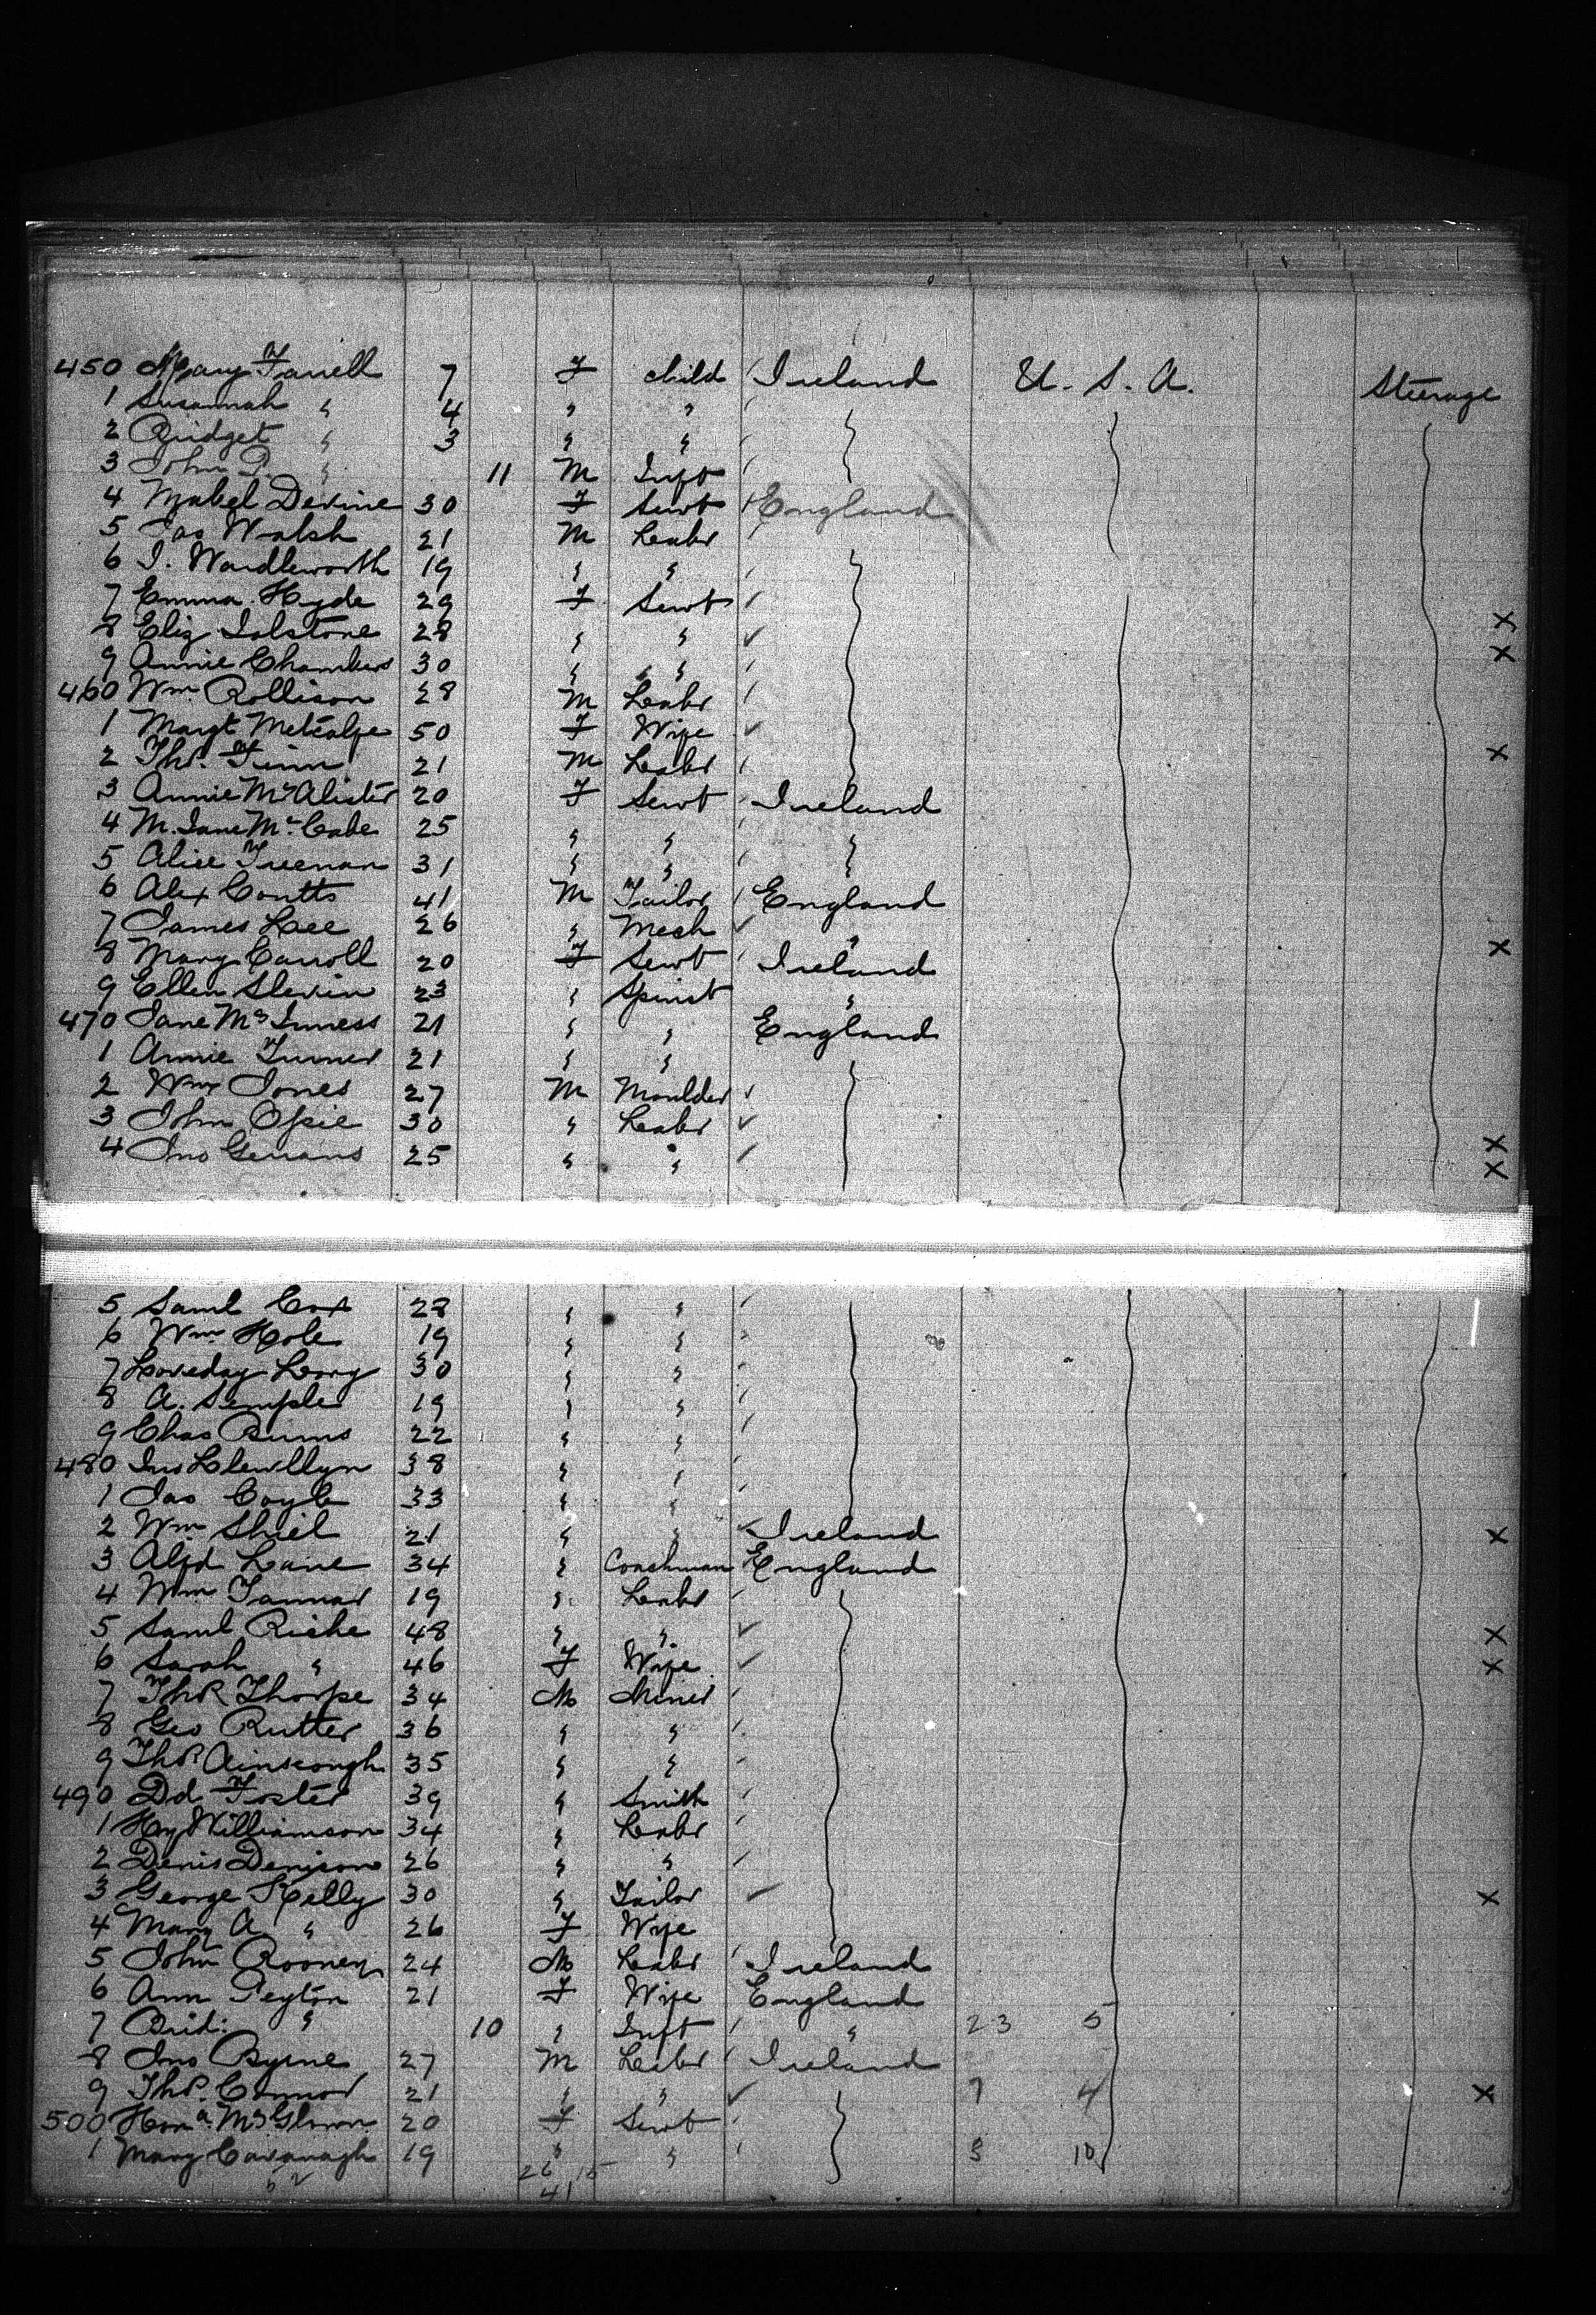 450 Mary Farrell 7 F child Ireland U. S. A. Steerage
1 Susannah " 4 " "
2 Bridget " 3 " "
3 John P. " 11 M Inft
4 Mabel Devine 30 F Servt England
5 Jas Walsh 21 M Labr
6 J. Wardleworth 19 " "
7 Emma Hyde 29 F Servt
8 Eliz 28 " " x
9 Annie Chambers 30 " " x
460 Wm Rollison 28 M Labr
1 Margt Metcalfe 50 F Wife
2 Thos. Finn 21 M Labr x
3 Annie McAlister 20 F Servt Ireland
4 M. Jane McCabe 25 " " "
5 Alice 31 " " "
6 Alex Coutts 41 M Tailor England
7 James Lee 26 " Mech "
8 Mary Carroll 20 F Servt Ireland x
9 Ellen Slevin 23 " Spinst "
470 Jane McInness 21 " " England
1 Annie Turner 21 " "
2 Wm Jones 27 M Moulder
3 John Opie 30 " Labr x
4 Jno Gerrans 25 " " x
5 Saml Cox 28 " "
6 Wm Hole 19 " "
7 Loveday Long 30 " "
8 A. Semple 19 " "
9 Chas Burns 22 " "
480 Jno Llewllyn 38 " "
1 Jas Coyle 33 " "
2 Wm Shiel 21 " " Ireland x
3 Alfd Lane 34 " Coachman England
4 Wm Tanner 19 " Labr
5 Saml Riche 48 " " x
6 Sarah " 46 F Wife x
7 Thos Thorpe 34 M Miner
8 Geo Rutter 36 " "
9 Thos Ainscough 35 " "
490 Dd Foster 39 " Smith
1 Hy Williamson 34 " Labr
2 Denis Denison 26 " "
3 George Kelly 30 " Tailor x
4 Mary A " 26 F Wife
5 John Rooney 24 M Labr Ireland
6 Ann Peyton 21 F Wife England
7 Brid: " 10 " Inft " 23 5
8 Jno Byrne 27 M Labr Ireland
9 Thos. Connor 21 " " 7 4 x
500 Hona. McGlown 20 F Servt
1 Mary Cavanagh 19 " " 3 10
52 26 15
41